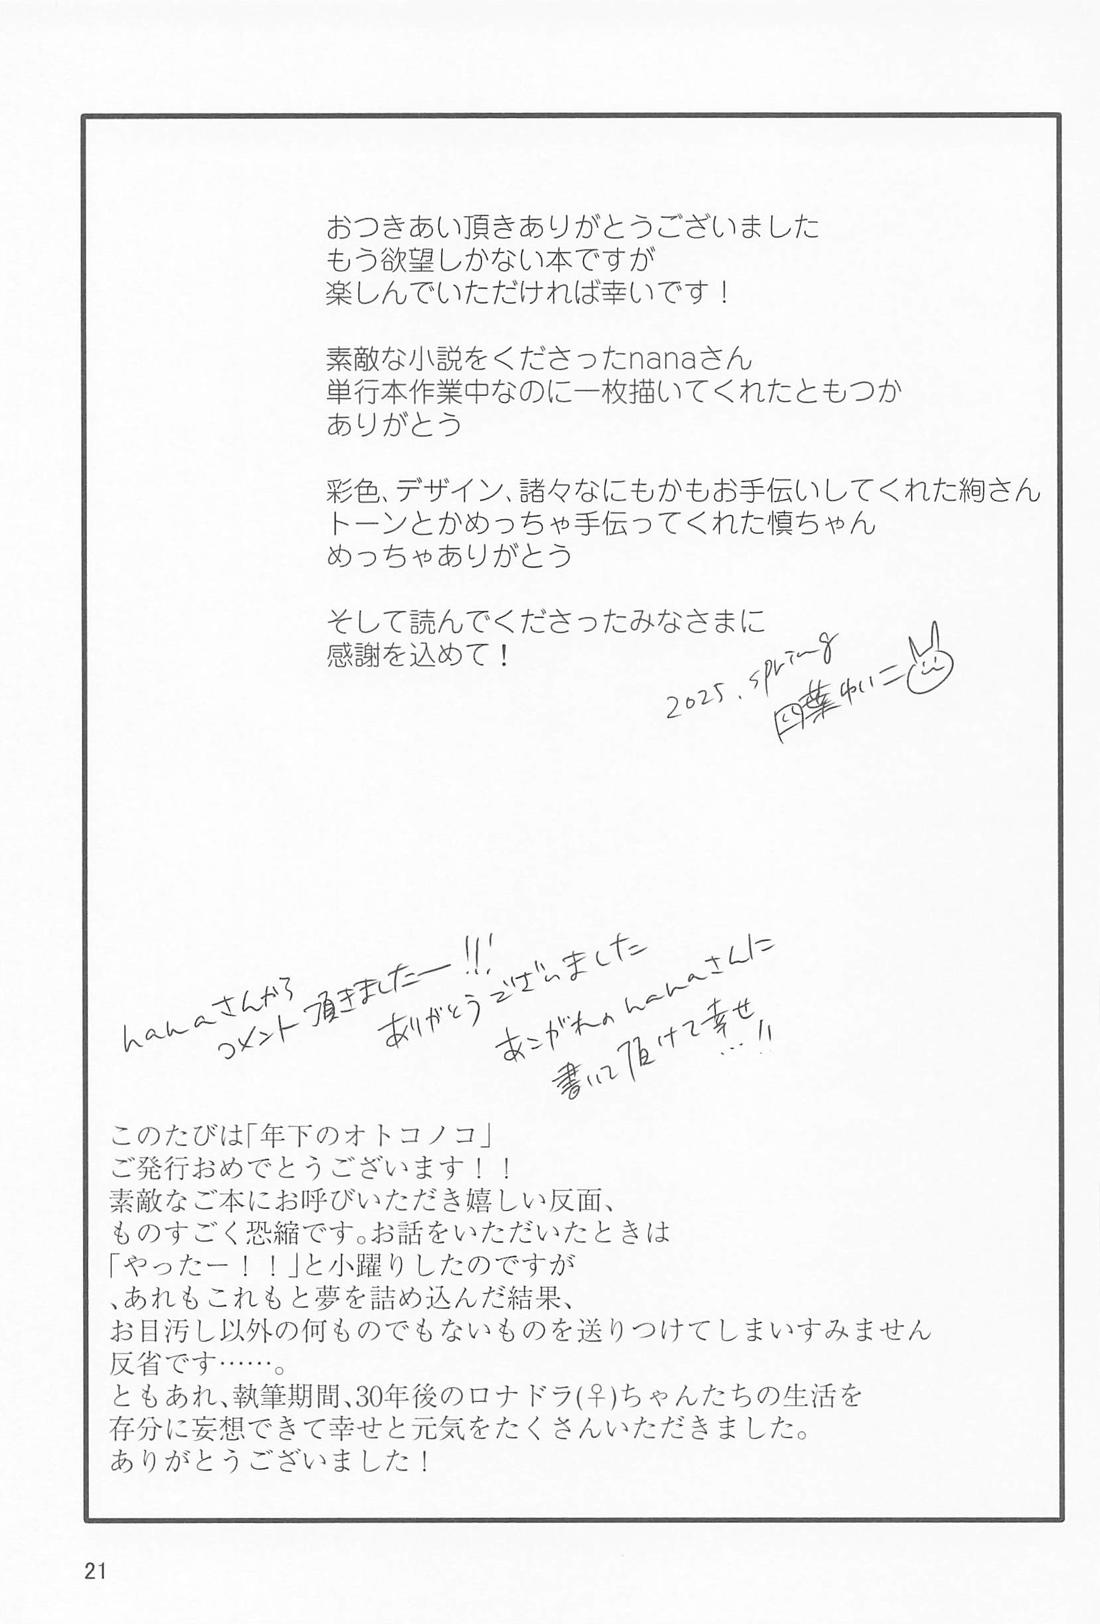 おつきあい頂きありがとうございました
もう欲望しかない本ですが
楽しんでいただければ幸いです！
素敵な小説をくださったnanaさん
単行本作業中なのに一枚描いてくれたともつか
ありがとう
彩色、デザイン、諸々なにもかもお手伝いしてくれた絢さん
トーンとかめっちゃ手伝ってくれた慎ちゃん
めっちゃありがとう
そして読んでくださったみなさまに
感謝を込めて！
2025.spring
四葉ゆいこ
nanaさんから
コメント頂きましたー!!!
ありがとうございました
あこがれのnanaさんに
書いて頂けて幸せ
…!!
このたびは「年下のオトコノコ」
ご発行おめでとうございます！！
素敵なご本にお呼びいただき嬉しい反面、
ものすごく恐縮です。お話をいただいたときは
「やったー！！」と小躍りしたのですが
、あれもこれもと夢を詰め込んだ結果、
お目汚し以外の何ものでもないものを送りつけてしまいすみません
反省です……。
ともあれ、執筆期間、30年後のロナドラ(♀)ちゃんたちの生活を
存分に妄想できて幸せと元気をたくさんいただきました。
ありがとうございました！
21